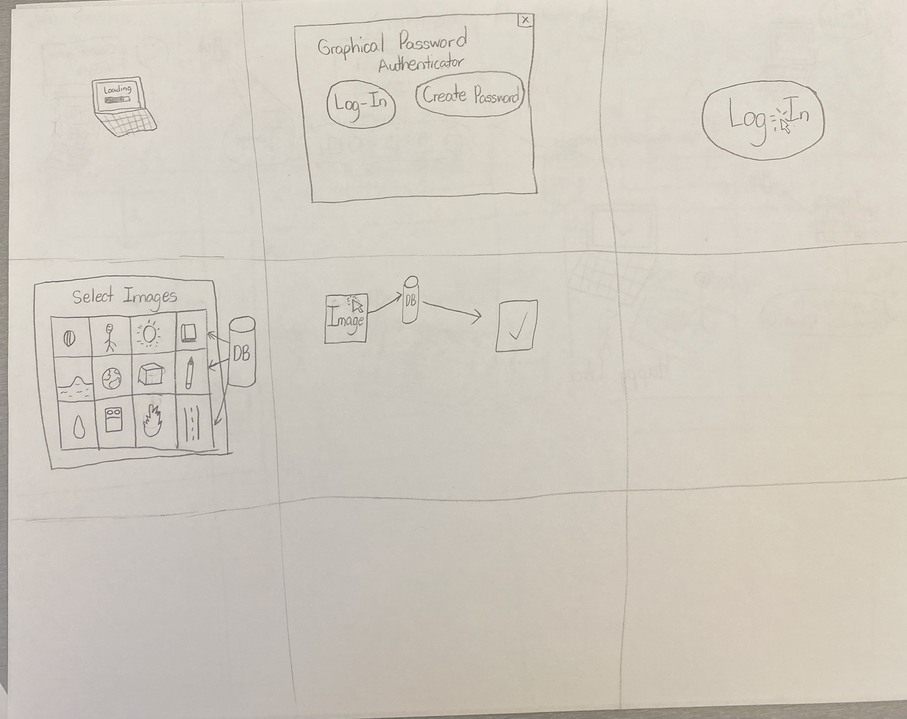 Loading
x
Graphical Password
Authenticator
Log-In
Create Password
Log-In
Select Images
DB
Image
DB